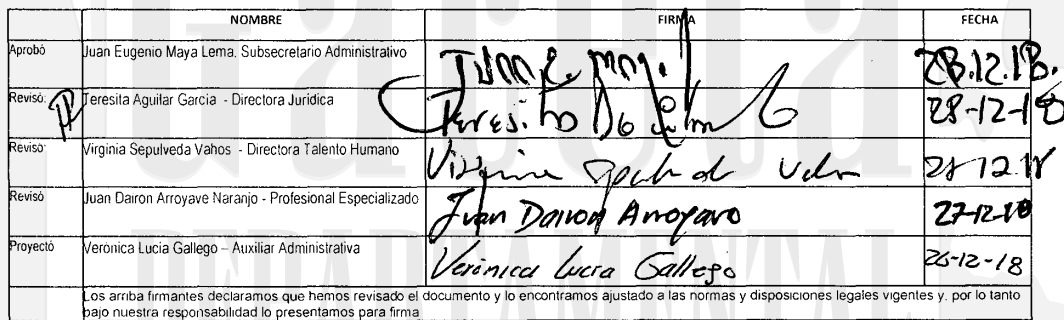 NOMBRE FIRMA FECHA
Aprobó Juan Eugenio Maya Lema. Subsecretario Administrativo Juan E. May. 28.12.18.
Revisó: Teresita Aguilar García - Directora Jurídica Teresita 28-12-18
Revisó: Virginia Sepulveda Vahos - Directora Talento Humano Virginia 12 18
Revisó Juan Dairon Arroyave Naranjo - Profesional Especializado Juan Dairon Arroyave 27-12-18
Proyectó Verónica Lucia Gallego – Auxiliar Administrativa Verónica Lucía Gallego 26-12-18
Los arriba firmantes declaramos que hemos revisado el documento y lo encontramos ajustado a las normas y disposiciones legales vigentes y, por lo tanto
bajo nuestra responsabilidad lo presentamos para firma